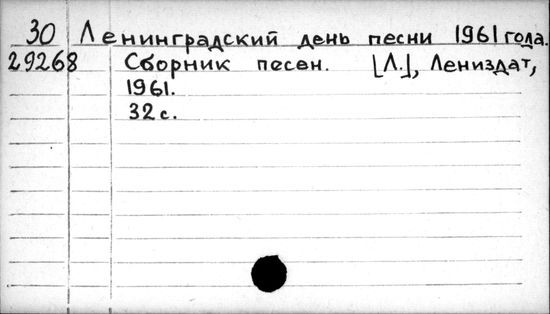 30 Ленинградский день песни 1961 года.
29268 Сборник песен. [Л.], Лениздат,
1961.
32 с.